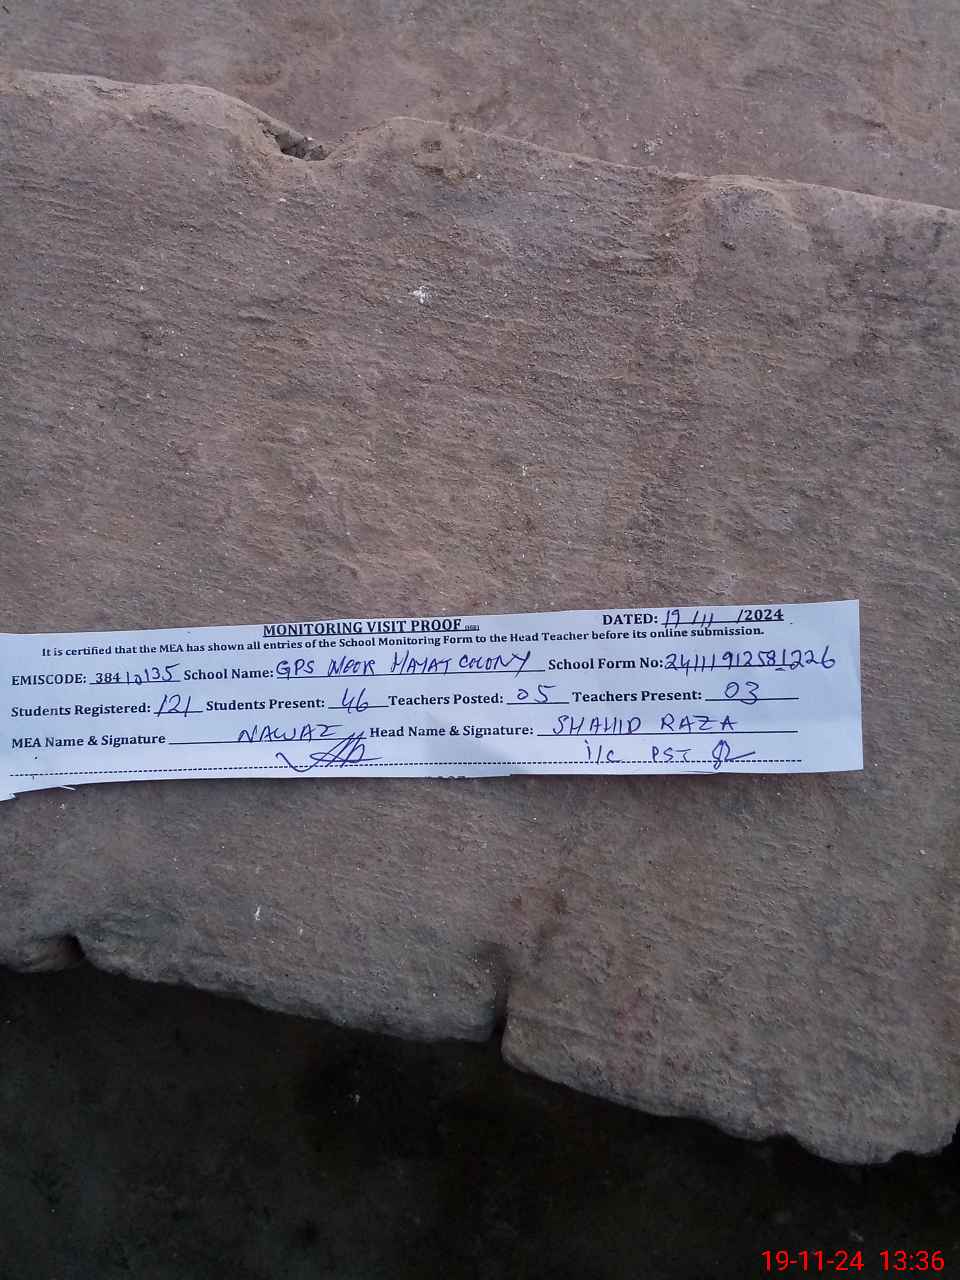 MONITORING VISIT PROOF DATED: 19/11/2024
It is certified that the MEA has shown all entries of the School Monitoring Form to the Head Teacher before its online submission.
EMISCODE: 38410135 School Name: GPS NOOR HAYAT COLONY School Form No: 24111912581226
Students Registered: 121 Students Present: 46 Teachers Posted: 05 Teachers Present: 03
MEA Name & Signature NAWAZ Head Name & Signature: SHAHID RAZA
i/c PST
19-11-24 13:36